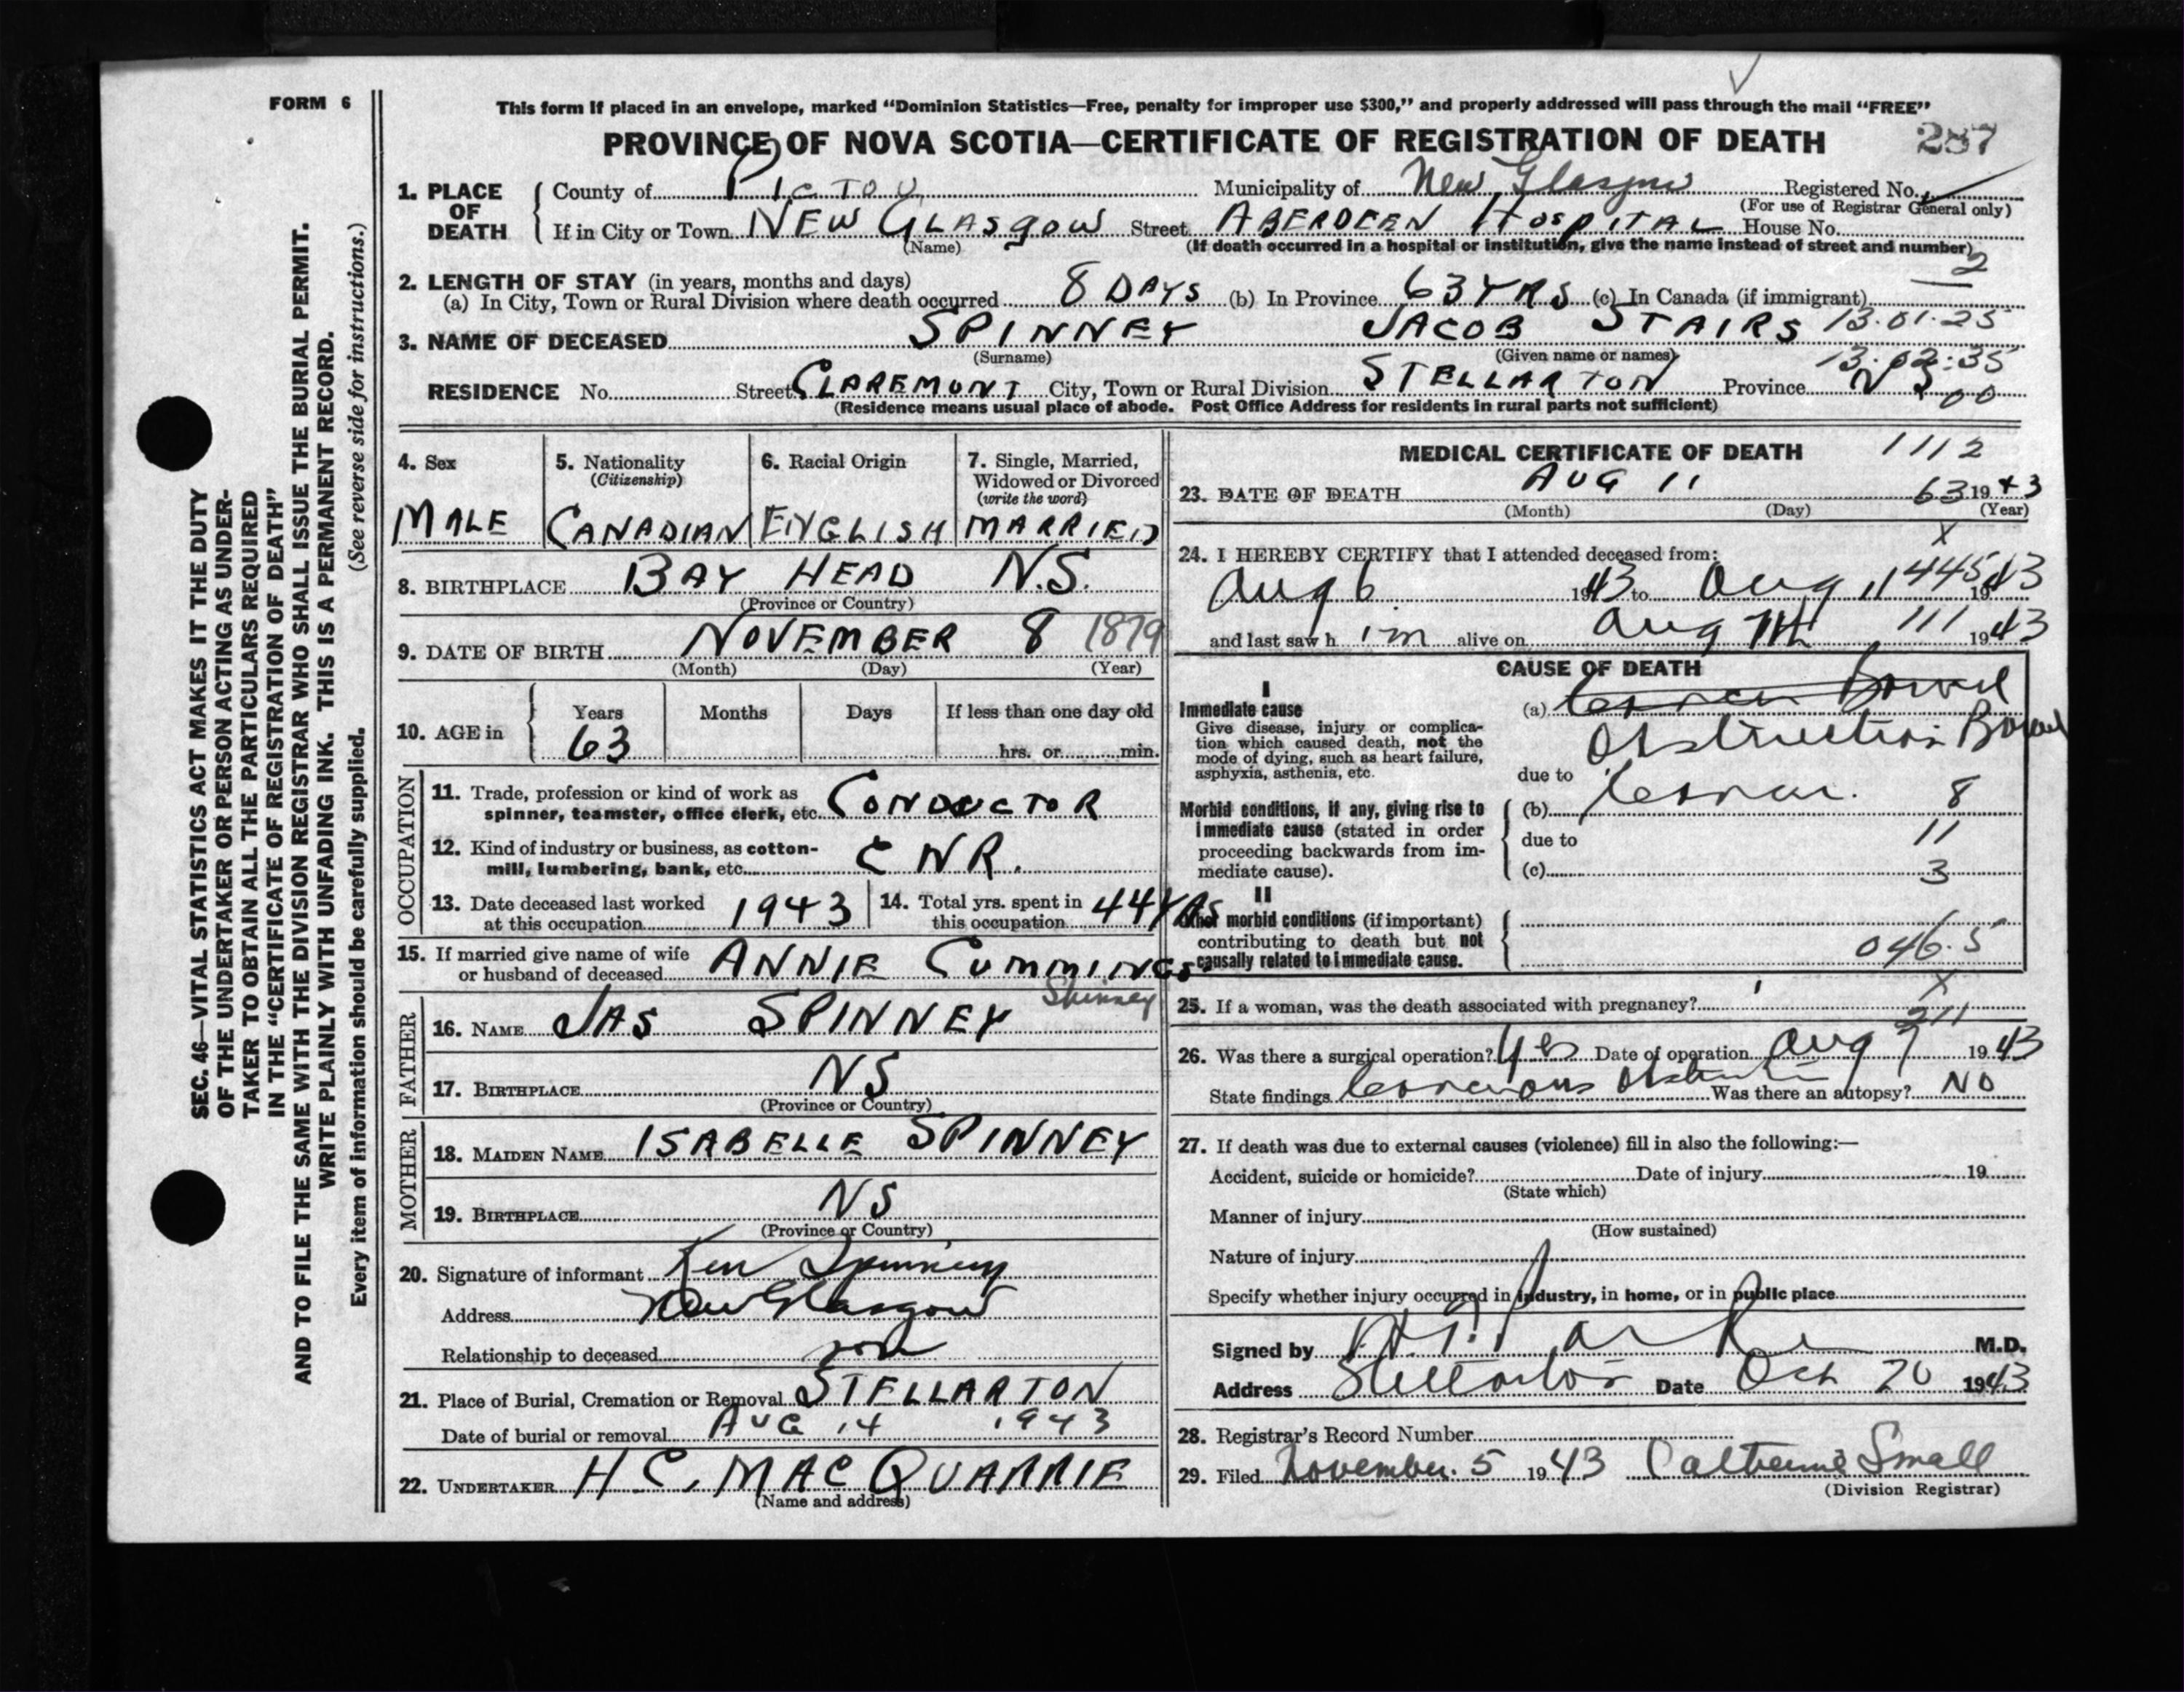 FORM 6
This form if placed in an envelope, marked “Dominion Statistics—Free, penalty for improper use $300,” and properly addressed will pass through the mail “FREE”
PROVINCE OF NOVA SCOTIA—CERTIFICATE OF REGISTRATION OF DEATH 287
1. PLACE OF DEATH County of PICTOU Municipality of New Glasgow Registered No.
(For use of Registrar General only)
If in City or Town NEW GLASGOW Street ABERDEEN HOSPITAL House No.
(Name) (If death occurred in a hospital or institution, give the name instead of street and number)
2
2. LENGTH OF STAY (in years, months and days)
(a) In City, Town or Rural Division where death occurred 8 DAYS (b) In Province 63 YRS (c) In Canada (if immigrant)
3. NAME OF DECEASED SPINNEY JACOB STAIRS 13.01.25
(Surname) (Given name or names) 13.02:35
RESIDENCE No. Street CLAREMONT City, Town or Rural Division STELLARTON Province N S 00
(Residence means usual place of abode. Post Office Address for residents in rural parts not sufficient)
4. Sex
MALE
5. Nationality
(Citizenship)
CANADIAN
6. Racial Origin
ENGLISH
7. Single, Married,
Widowed or Divorced
(write the word)
MARRIED
8. BIRTHPLACE BAY HEAD N.S.
(Province or Country)
9. DATE OF BIRTH NOVEMBER 8 1879
(Month) (Day) (Year)
10. AGE in Years Months Days If less than one day old
63 hrs. or min.
OCCUPATION
11. Trade, profession or kind of work as
spinner, teamster, office clerk, etc. CONDUCTOR
12. Kind of industry or business, as cotton-
mill, lumbering, bank, etc. CNR.
13. Date deceased last worked
at this occupation 1943
14. Total yrs. spent in
this occupation 44 YRS
15. If married give name of wife
or husband of deceased ANNIE CUMMINGS
Spinney
FATHER
16. NAME JAS SPINNEY
17. BIRTHPLACE NS
(Province or Country)
MOTHER
18. MAIDEN NAME ISABELLE SPINNEY
19. BIRTHPLACE NS
(Province or Country)
20. Signature of informant Ken Spinney
Address New Glasgow
Relationship to deceased son
21. Place of Burial, Cremation or Removal STELLARTON
Date of burial or removal AUG 14 1943
22. UNDERTAKER H C. MACQUARRIE
(Name and address)
MEDICAL CERTIFICATE OF DEATH 1112
23. DATE OF DEATH AUG 11 63 1943
(Month) (Day) (Year)
X
24. I HEREBY CERTIFY that I attended deceased from:
Aug 6 1943 to Aug 11 445 1943
and last saw h im alive on Aug 11th 111 1943
CAUSE OF DEATH
I
Immediate cause
Give disease, injury or complica-
tion which caused death, not the
mode of dying, such as heart failure,
asphyxia, asthenia, etc.
(a) Cancer Bowel
Obstruction Bowel
due to
Morbid conditions, if any, giving rise to
immediate cause (stated in order
proceeding backwards from im-
mediate cause).
(b) Cancer. 8
due to 11
(c) 3
II
Other morbid conditions (if important)
contributing to death but not
causally related to immediate cause.
046.5
X
25. If a woman, was the death associated with pregnancy?
211
26. Was there a surgical operation? Yes Date of operation Aug 7 1943
State findings Cancerous Obstruction Was there an autopsy? NO
27. If death was due to external causes (violence) fill in also the following:—
Accident, suicide or homicide? Date of injury 19
(State which)
Manner of injury
(How sustained)
Nature of injury
Specify whether injury occurred in industry, in home, or in public place
Signed by Parker M.D.
Address Stellarton Date Oct 20 1943
28. Registrar's Record Number
29. Filed November 5 1943 Catherine Small
(Division Registrar)
SEC. 46—VITAL STATISTICS ACT MAKES IT THE DUTY
OF THE UNDERTAKER OR PERSON ACTING AS UNDER-
TAKER TO OBTAIN ALL THE PARTICULARS REQUIRED
IN THE “CERTIFICATE OF REGISTRATION OF DEATH”
AND TO FILE THE SAME WITH THE DIVISION REGISTRAR WHO SHALL ISSUE THE BURIAL PERMIT.
WRITE PLAINLY WITH UNFADING INK. THIS IS A PERMANENT RECORD.
Every item of information should be carefully supplied. (See reverse side for instructions.)